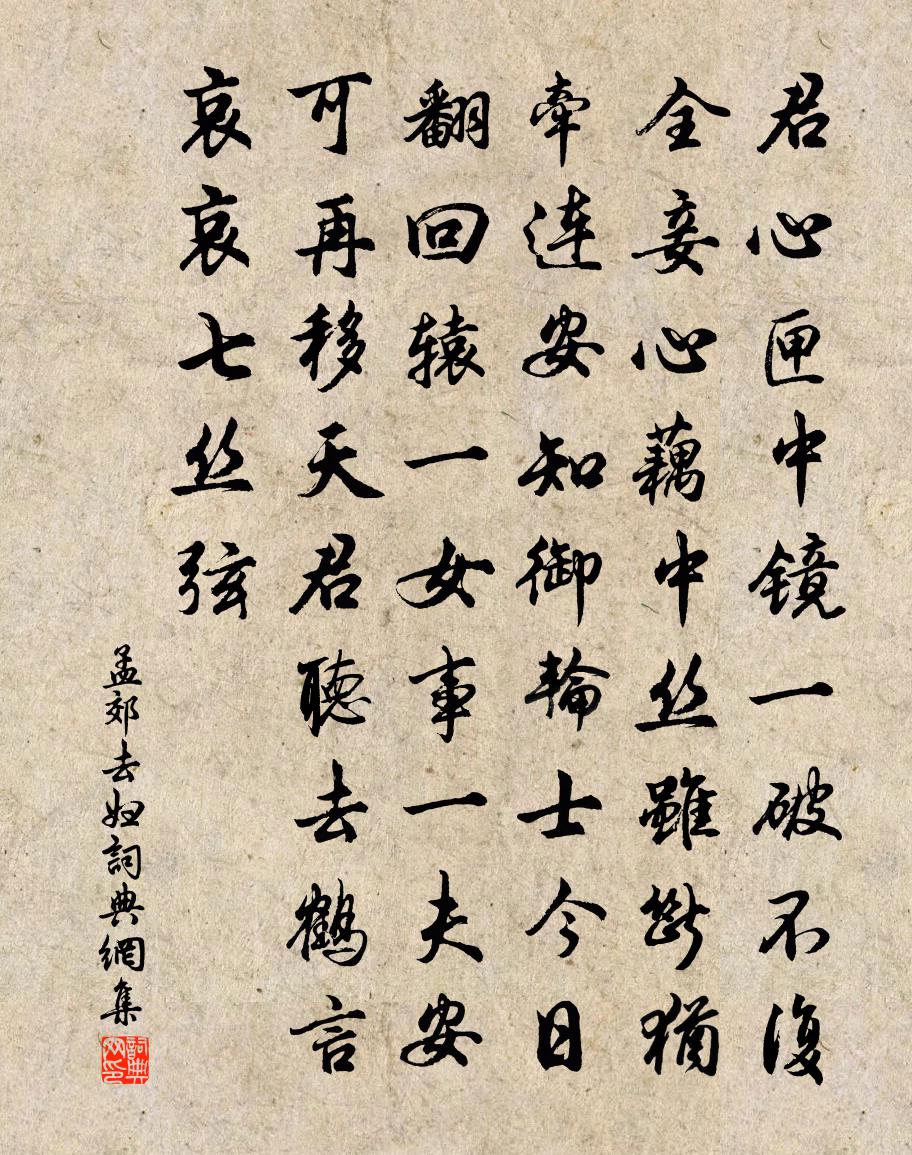 君心匣中镜一破不復
全妾心藕中丝雖斷猶
牽连安知御輪士今日
翻回辕一女事一夫安
可再移天君聽去鹤言
哀哀七丝弦
孟郊去妇詞典網集
詞典网印